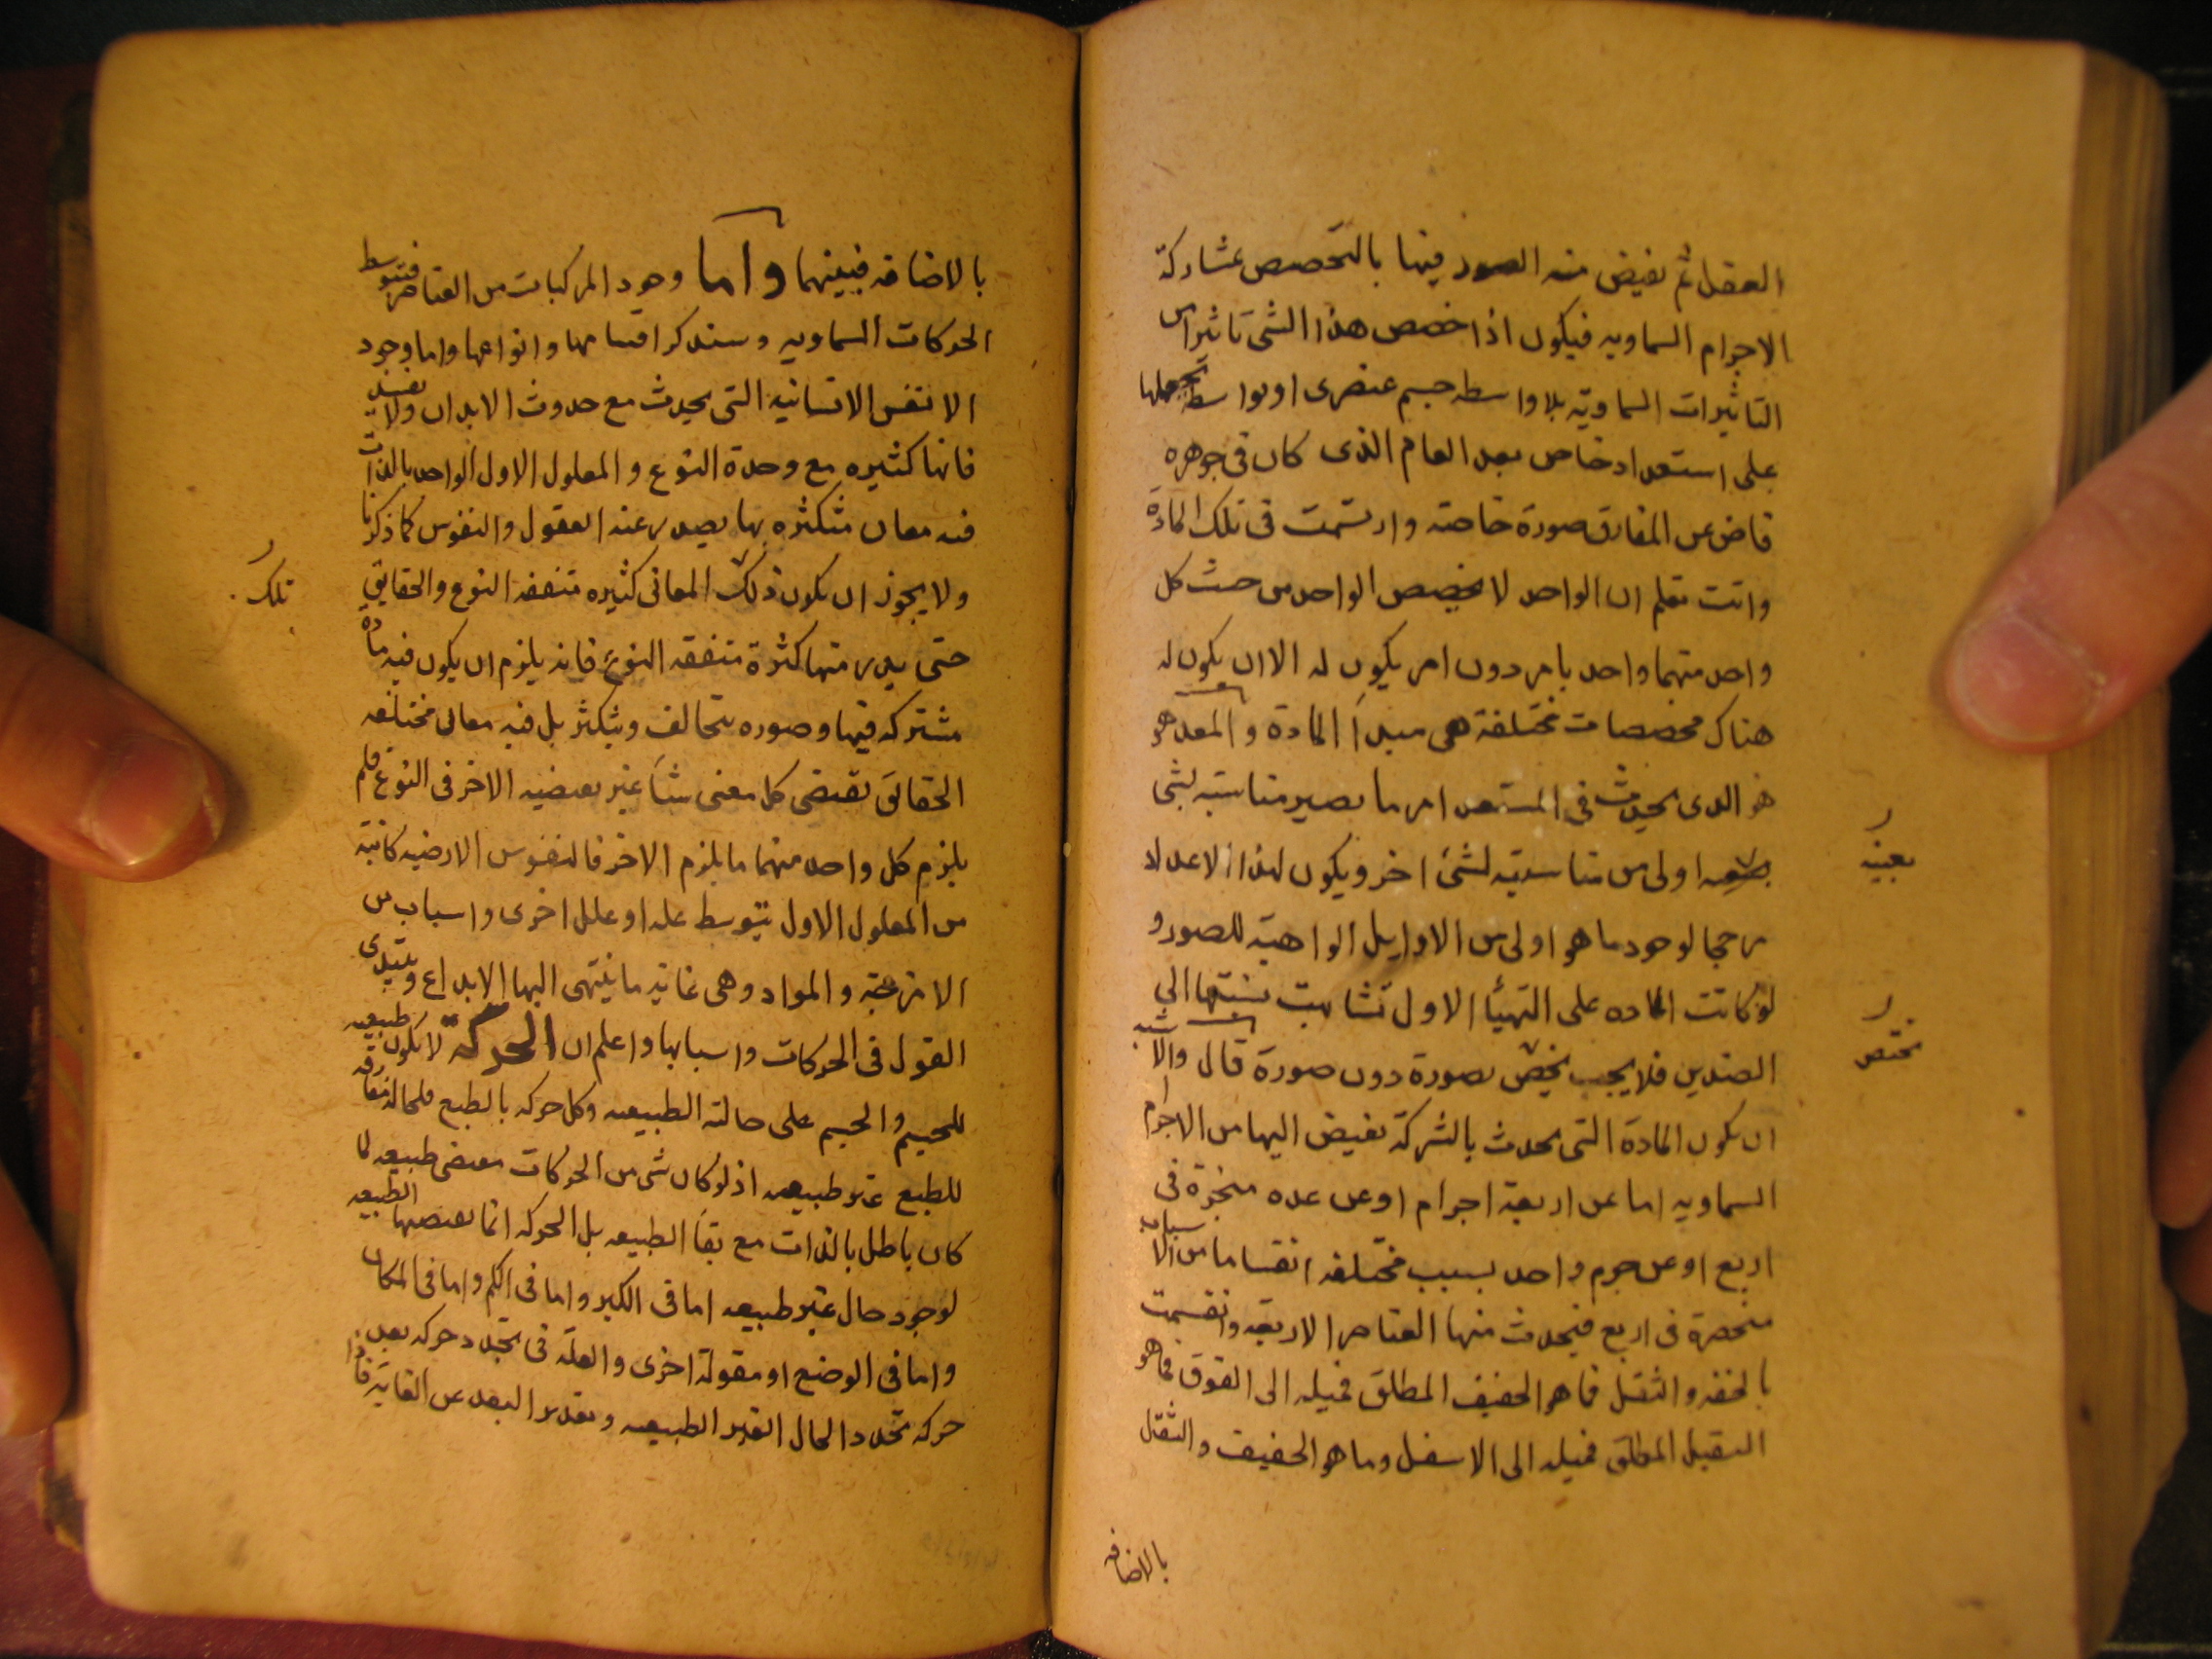 العقل ثم يفيض منه الصور فيها بالتخصص بمشاركة
الاجرام السماويه فيكون اذا خصص هذا الشئ تاثير من
التاثيرات السماوية بلا واسطه جسم عنصرى او بواسطه تجعلها
على استعداد خاص بعد العام الذى كان فى جوهره
فاض عن المفارق صورة خاصة وارتسمت فى تلك المادة
وانت تعلم ان الواحد لا يخصص الواحد من حيث كل
واحد منهما واحد بامر دون امر يكون له الا ان يكون له
هناك مخصصات مختلفة هى مبدأ المادة والمعد هو
هو الذى يحدث فى المستعد امر ما يصير مناسبته لشئ
بعينه اولى من مناسبته لشئ اخر ويكون هذا الاعداد
مرجحا لوجود ما هو اولى من الاوايل الواهبة للصور و
لو كانت الماده على التهيأ الاول تشابهت نسبتها الى
الضدين فلا يجب يختص بصورة دون صورة قال والاشبه
ان يكون المادة التى يحدث بالشركة يفيض اليها من الاجرام
السماويه اما عن اربعة اجرام او عن عده منحصرة فى
اربع او عن جرم واحد بسبب مختلفه انقساما من الاسباب
منحصرة فى اربع فيحدث منها العناصر الاربعه وانقسمت
بالخفه والثقل فما هو الخفيف المطلق فميله الى الفوق فما هو
الثقيل المطلق فميله الى الاسفل وما هو الخفيف والثقيل
بالاضافه
بعينه
يختص
بالاضافه فبينهما واما وجود المركبات من العناصر فبتوسط
الحركات السماويه وسنذكر اقسامها وانواعها واما وجود
الانفس الانسانية التى يحدث مع حدوث الابدان ولا تفسد
فانها كثيره مع وحدة النوع والمعلول الاول الواحد بالذات
فيه معان متكثره بها يصدر عنه العقول والنفوس كما ذكرنا
ولا يجوز ان يكون ذلك المعانى كثيره متفقه النوع والحقايق
تلك
حتى يصدر منها كثرة متفقه النوع فانه يلزم ان يكون فيه مادة
مشتركه فيها وصوره يتخالف ويتكثر بل فيه معانى مختلفه
الحقائق يقتضى كل معنى شيأ غير يقتضيه الاخر فى النوع فلم
يلزم كل واحد منهما ما يلزم الاخر فالنفوس الارضيه كائنة
من المعلول الاول بتوسط عله او علل اخرى واسباب من
الامزجة والمواد وهى غاية ما ينتهى اليها الابداع ويبتدى
القول فى الحركات واسبابها واعلم ان الحركة لا يكون طبيعيه
للجسم والجسم على حالته الطبيعيه وكل حركه بالطبع فلحالة مفارقه
للطبع غير طبيعيه اذ لو كان شى من الحركات مقتضى طبيعه لما
كان باطل بالذات مع بقأ الطبيعه بل الحركه انما يقتضيها الطبيعه
لوجود حال غير طبيعيه اما فى الكيف واما فى الكم واما فى المكان
واما فى الوضع او مقولة اخرى والعلة فى تجدد حركه بعد
حركه تجدد الحال الغير الطبيعيه وتقدير البعد عن الغاية فاذا